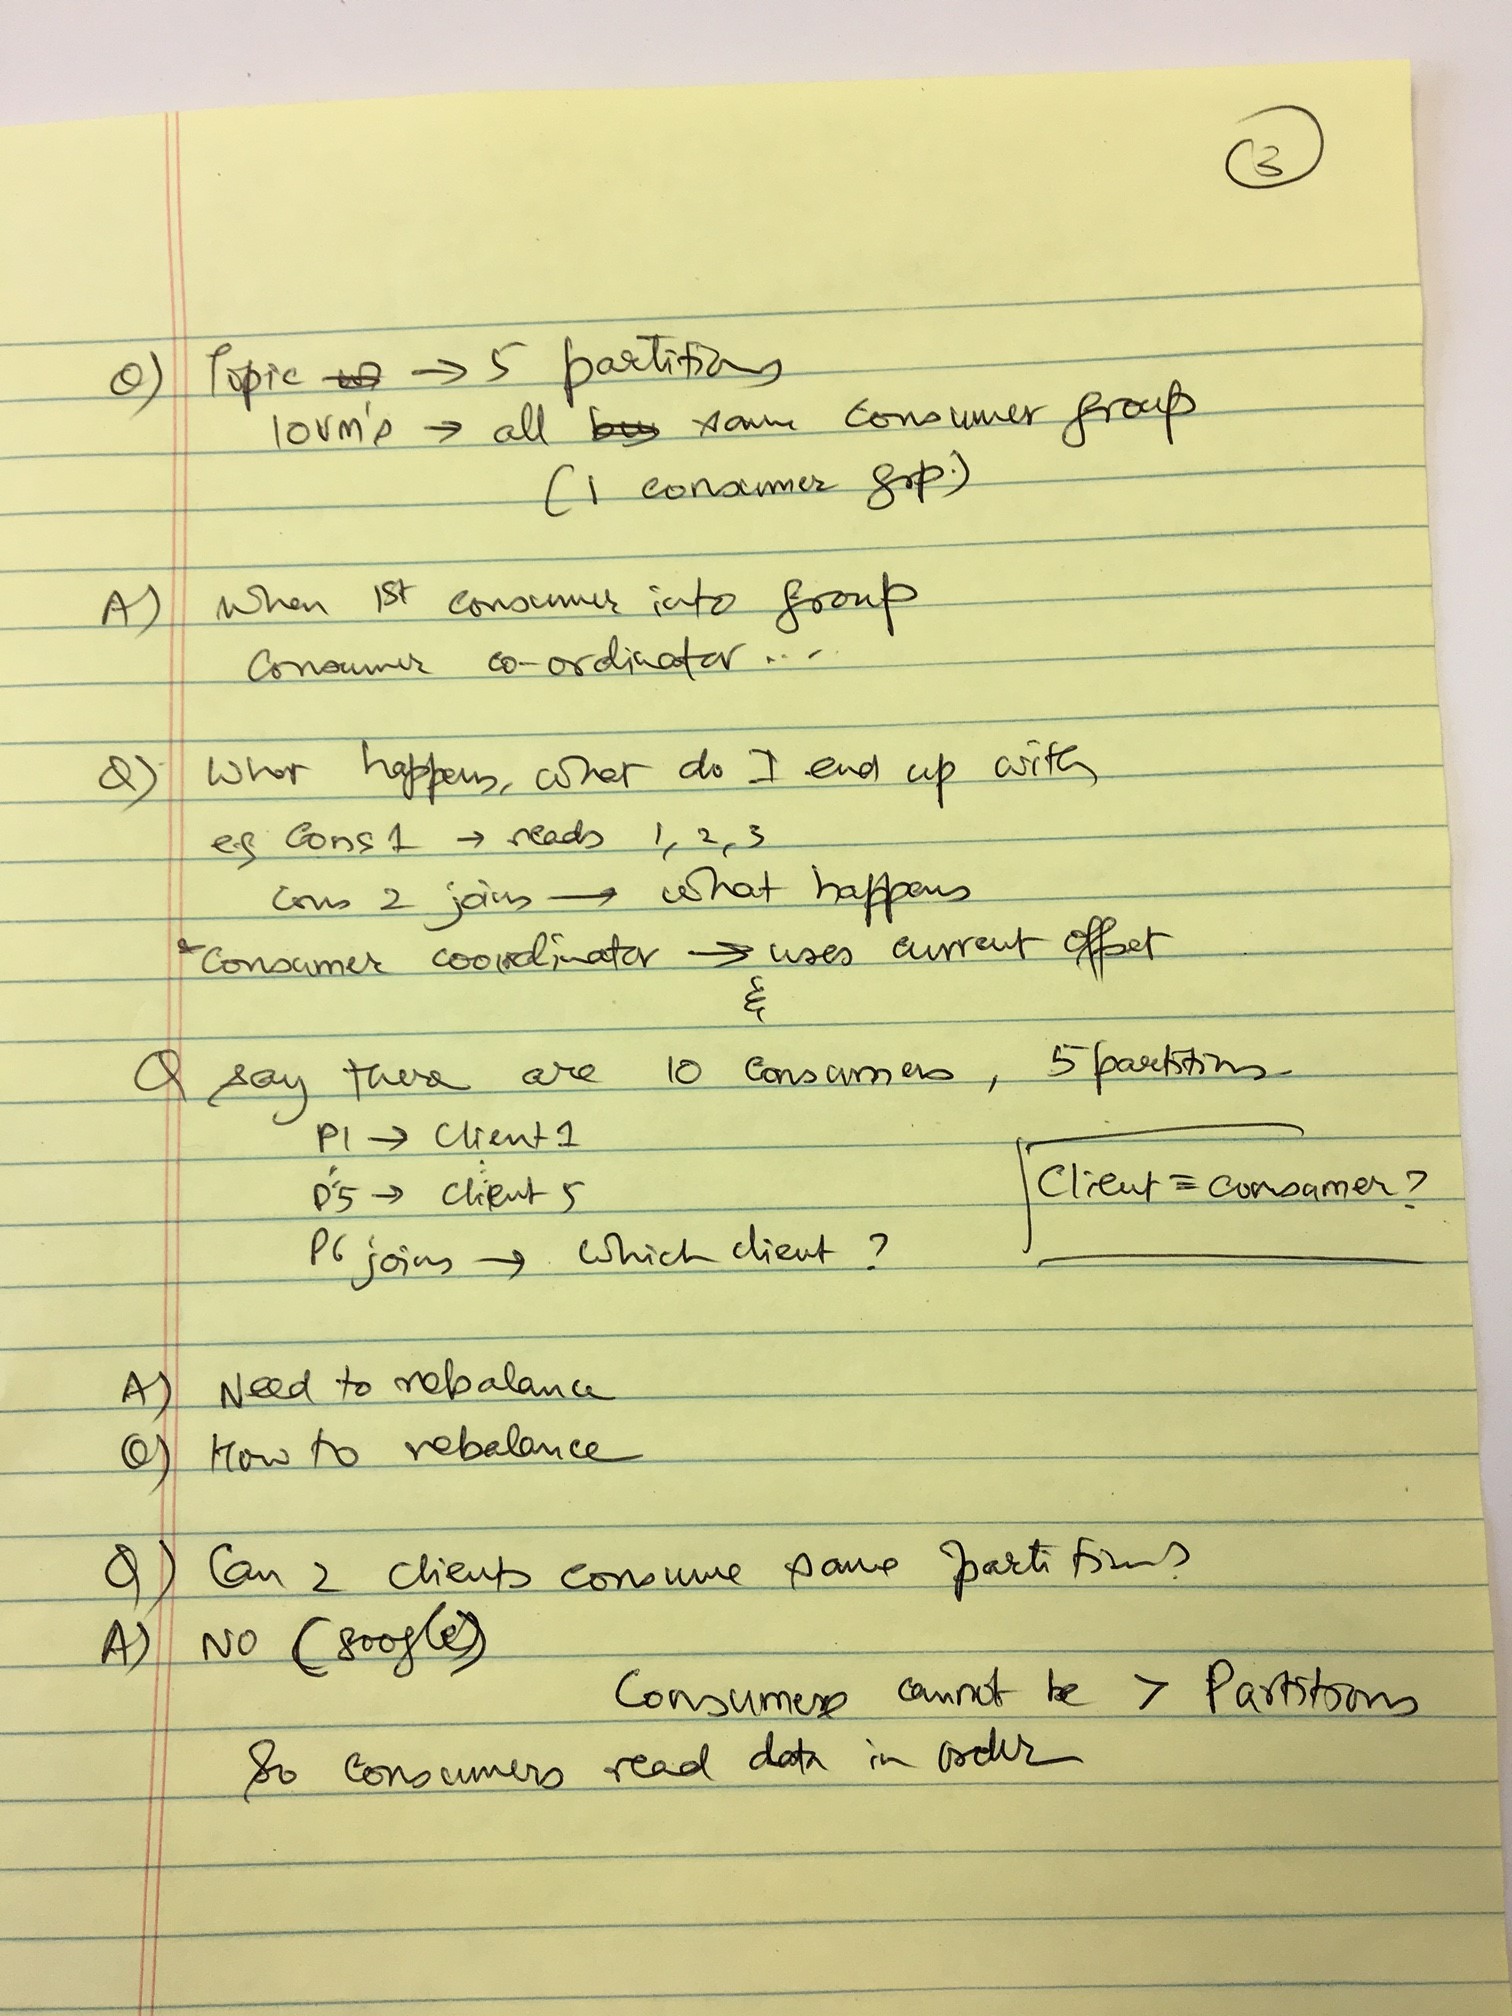 3
Q) Topic → 5 partitions
10VM's → all same consumer group
(1 consumer grp.)
A) When 1st consumer into group
Consumer co-ordinator ....
Q) What happens, what do I end up with
eg Cons 1 → reads 1, 2, 3
Cons 2 joins → what happens
*Consumer coordinator → uses current offset
&
Q say there are 10 consumers, 5 partitions
P1 → Client 1
P5 → Client 5
Client = consumer?
P6 joins → which client ?
A) Need to rebalance
Q) How to rebalance
Q) Can 2 clients consume same partition?
A) NO (google)
Consumers cannot be > Partitions
So consumers read data in order